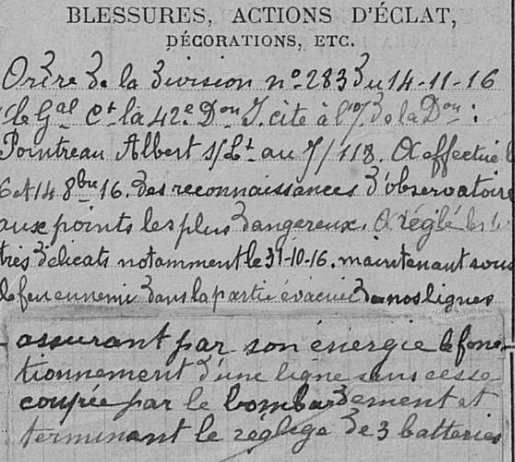 BLESSURES, ACTIONS D'ÉCLAT,
DÉCORATIONS, ETC.
Ordre de la Division nº 283 du 14-11-16
le Gal Ct la 42e Don I. cite à l'o/ de la Don :
Pointreau Albert s/Lt au /118. A effectué
6 et 14 8bre 16. des reconnaissances d'observatoire
aux points les plus dangereux. A réglé des
très délicats notamment le 31-10-16. maintenant sous
le feu ennemi dans la partie évacuée de nos lignes
assurant par son énergie le fonc-
tionnement d'une ligne sans cesse
coupée par le bombardement et
terminant le réglage de 3 batteries